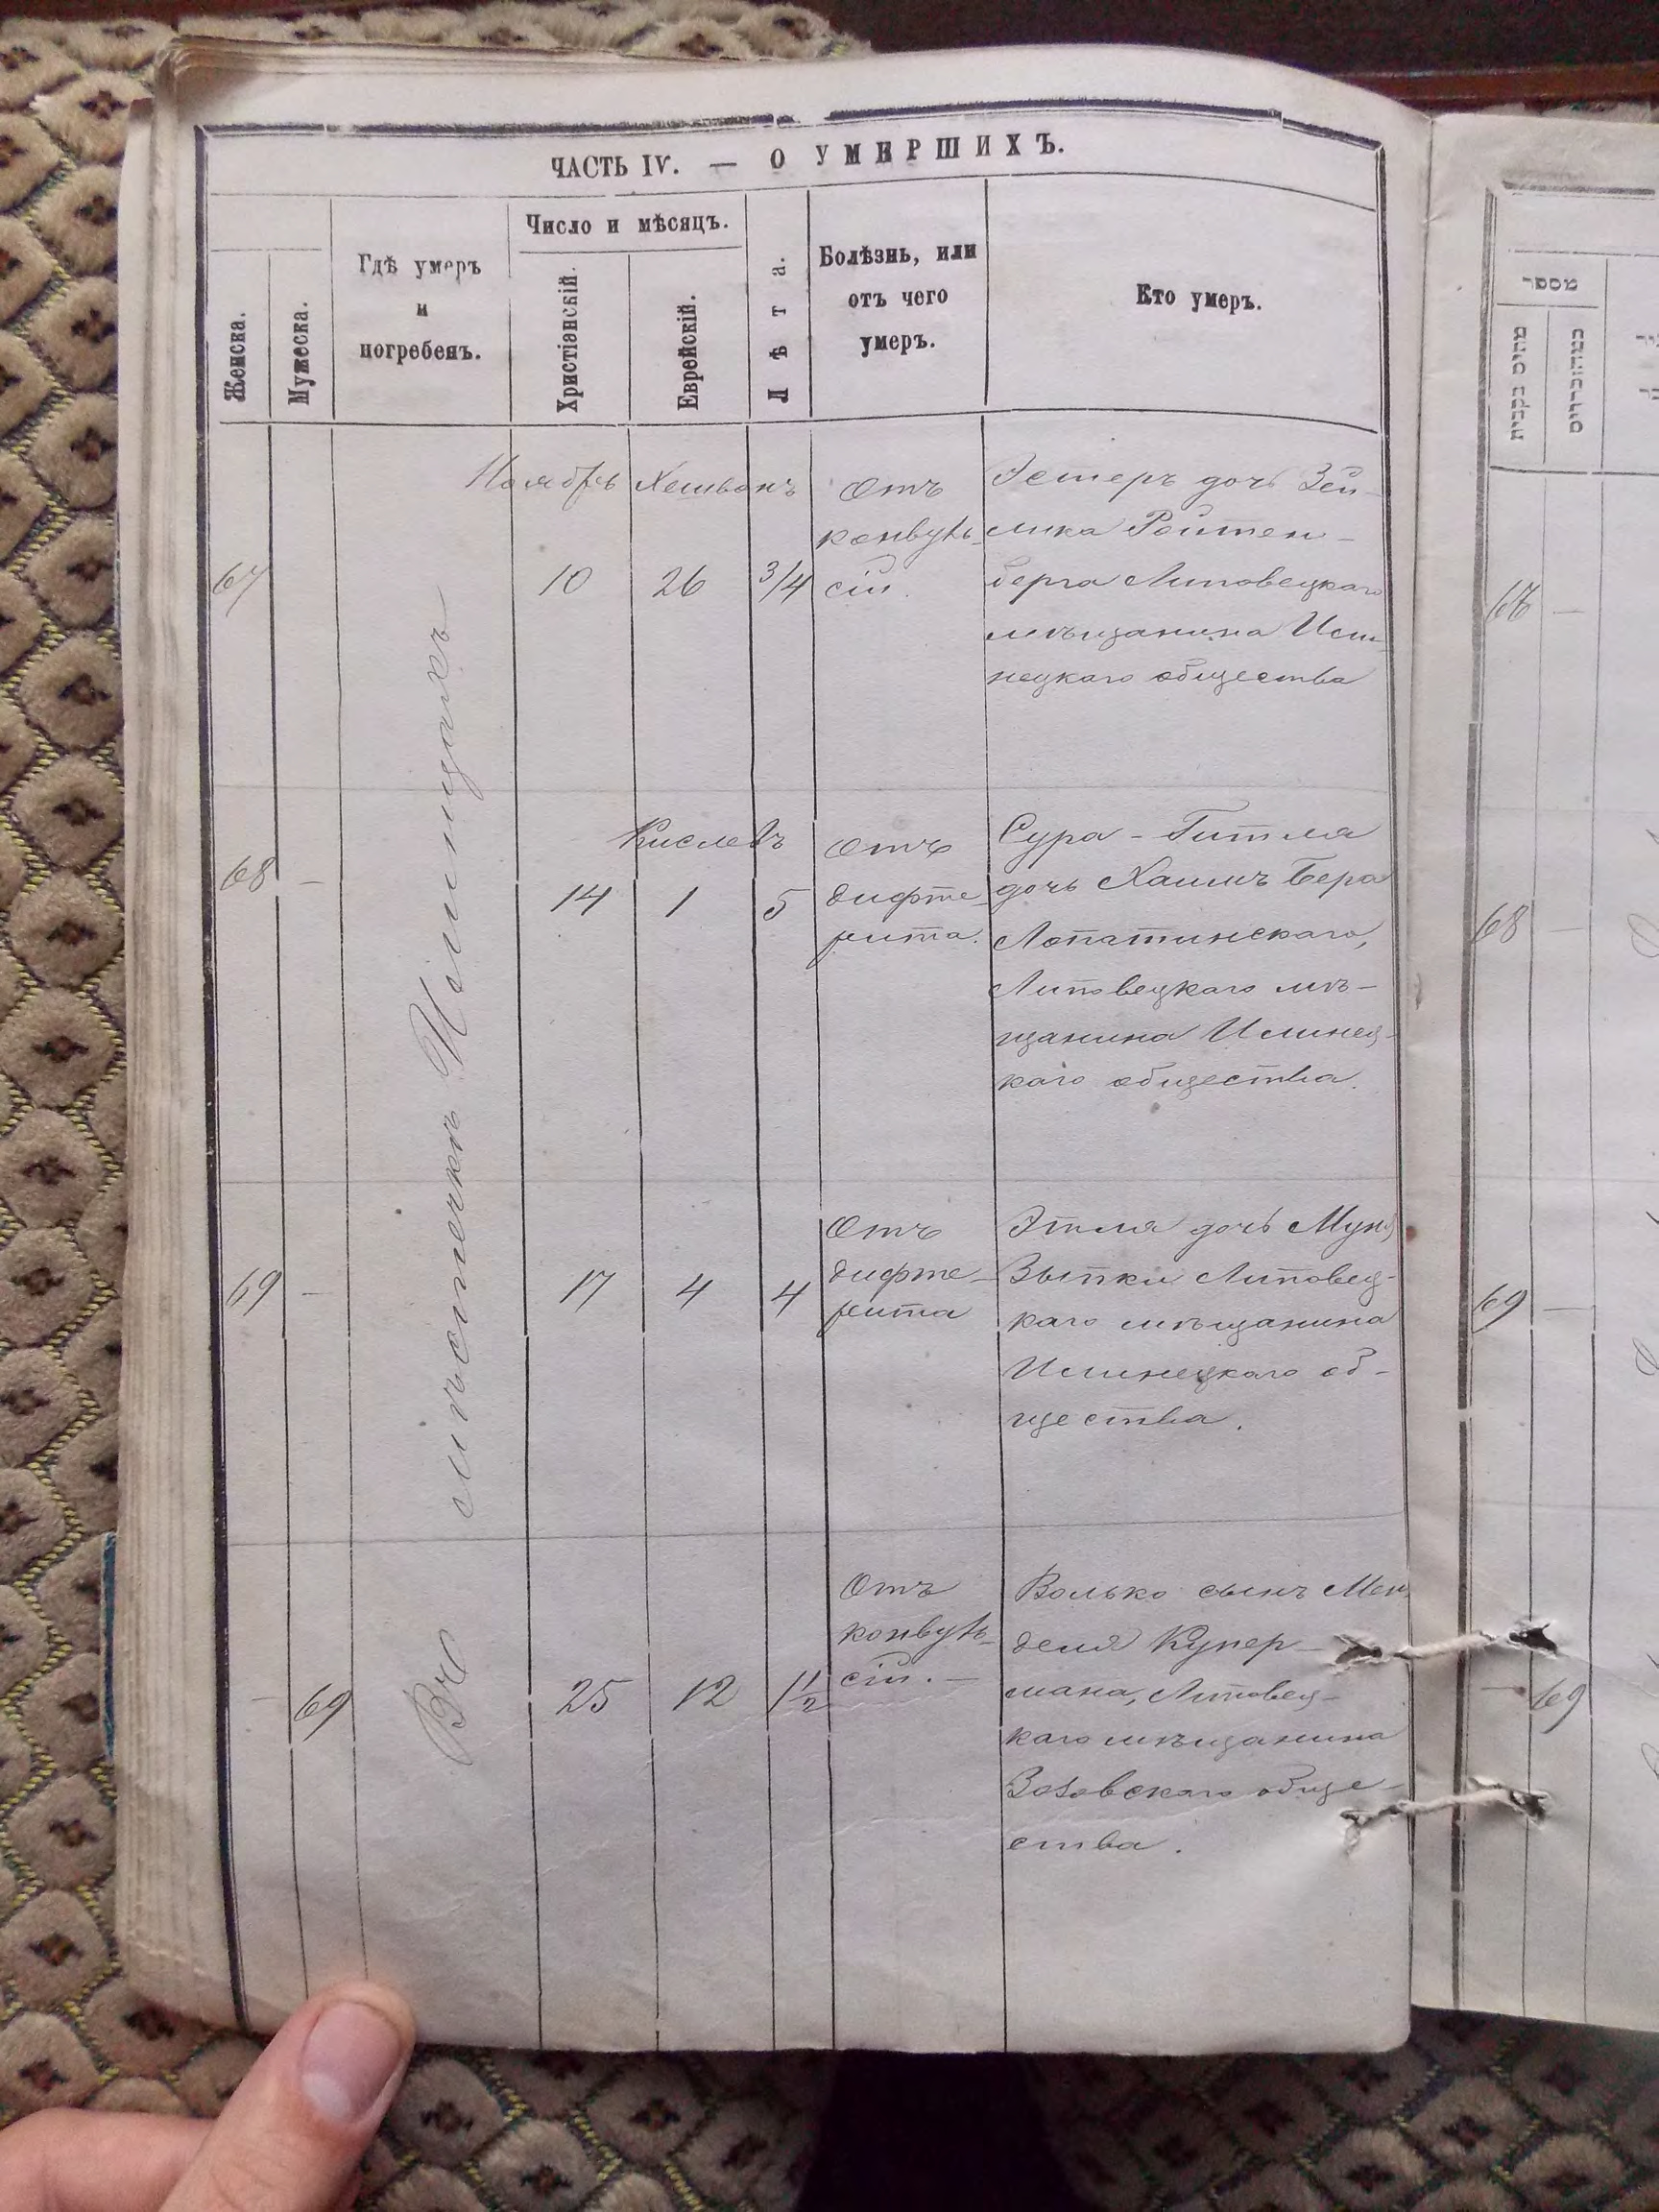 ЧАСТЬ IV. — О УМЕРШИХЪ.
Женска.
Мужеска.
Гдѣ умеръ
и
погребенъ.
Число и мѣсяцъ.
Христіанскій.
Еврейскій.
Лѣта.
Болѣзнь, или
отъ чего
умеръ.
Кто умеръ.
Въ мѣстечкѣ Илинцахъ
67
Ноябрь
10
Хешванъ
26
3/4
Отъ
конвуль-
сіи.
Эстеръ дочь Зей-
лика Ройтен-
берга Липовецкаго
мѣщанина Или-
нецкаго общества
68 —
14
Кислевъ
1
5
Отъ
дифте-
рита.
Сура-Гитля
дочь Хаимъ Бера
Лопатинскаго,
Липовецкаго мѣ-
щанина Илинец-
каго общества.
69 —
17
4
4
Отъ
дифте-
рита
Этля дочь
Липовец-
каго мѣщанина
Илинецкаго об-
щества.
— 69
25
12
1 1/2
Отъ
конвуль-
сіи. —
Волько сынъ Мен-
деля Купер-
мана, Липовец-
каго мѣщанина
обще-
ства.
67 —
68 —
69 —
— 69